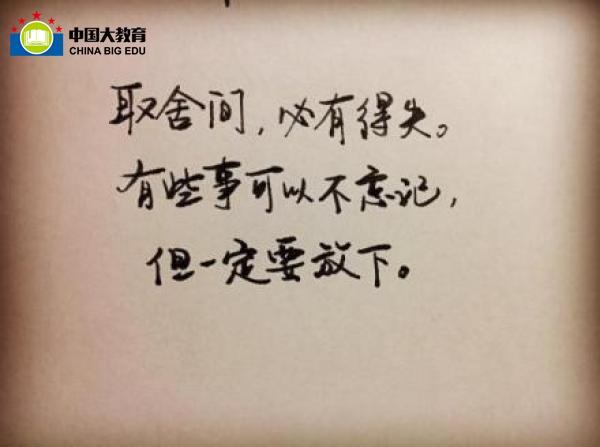 中国大教育
CHINA BIG EDU
取舍间，必有得失。
有些事可以不忘记，
但一定要放下。